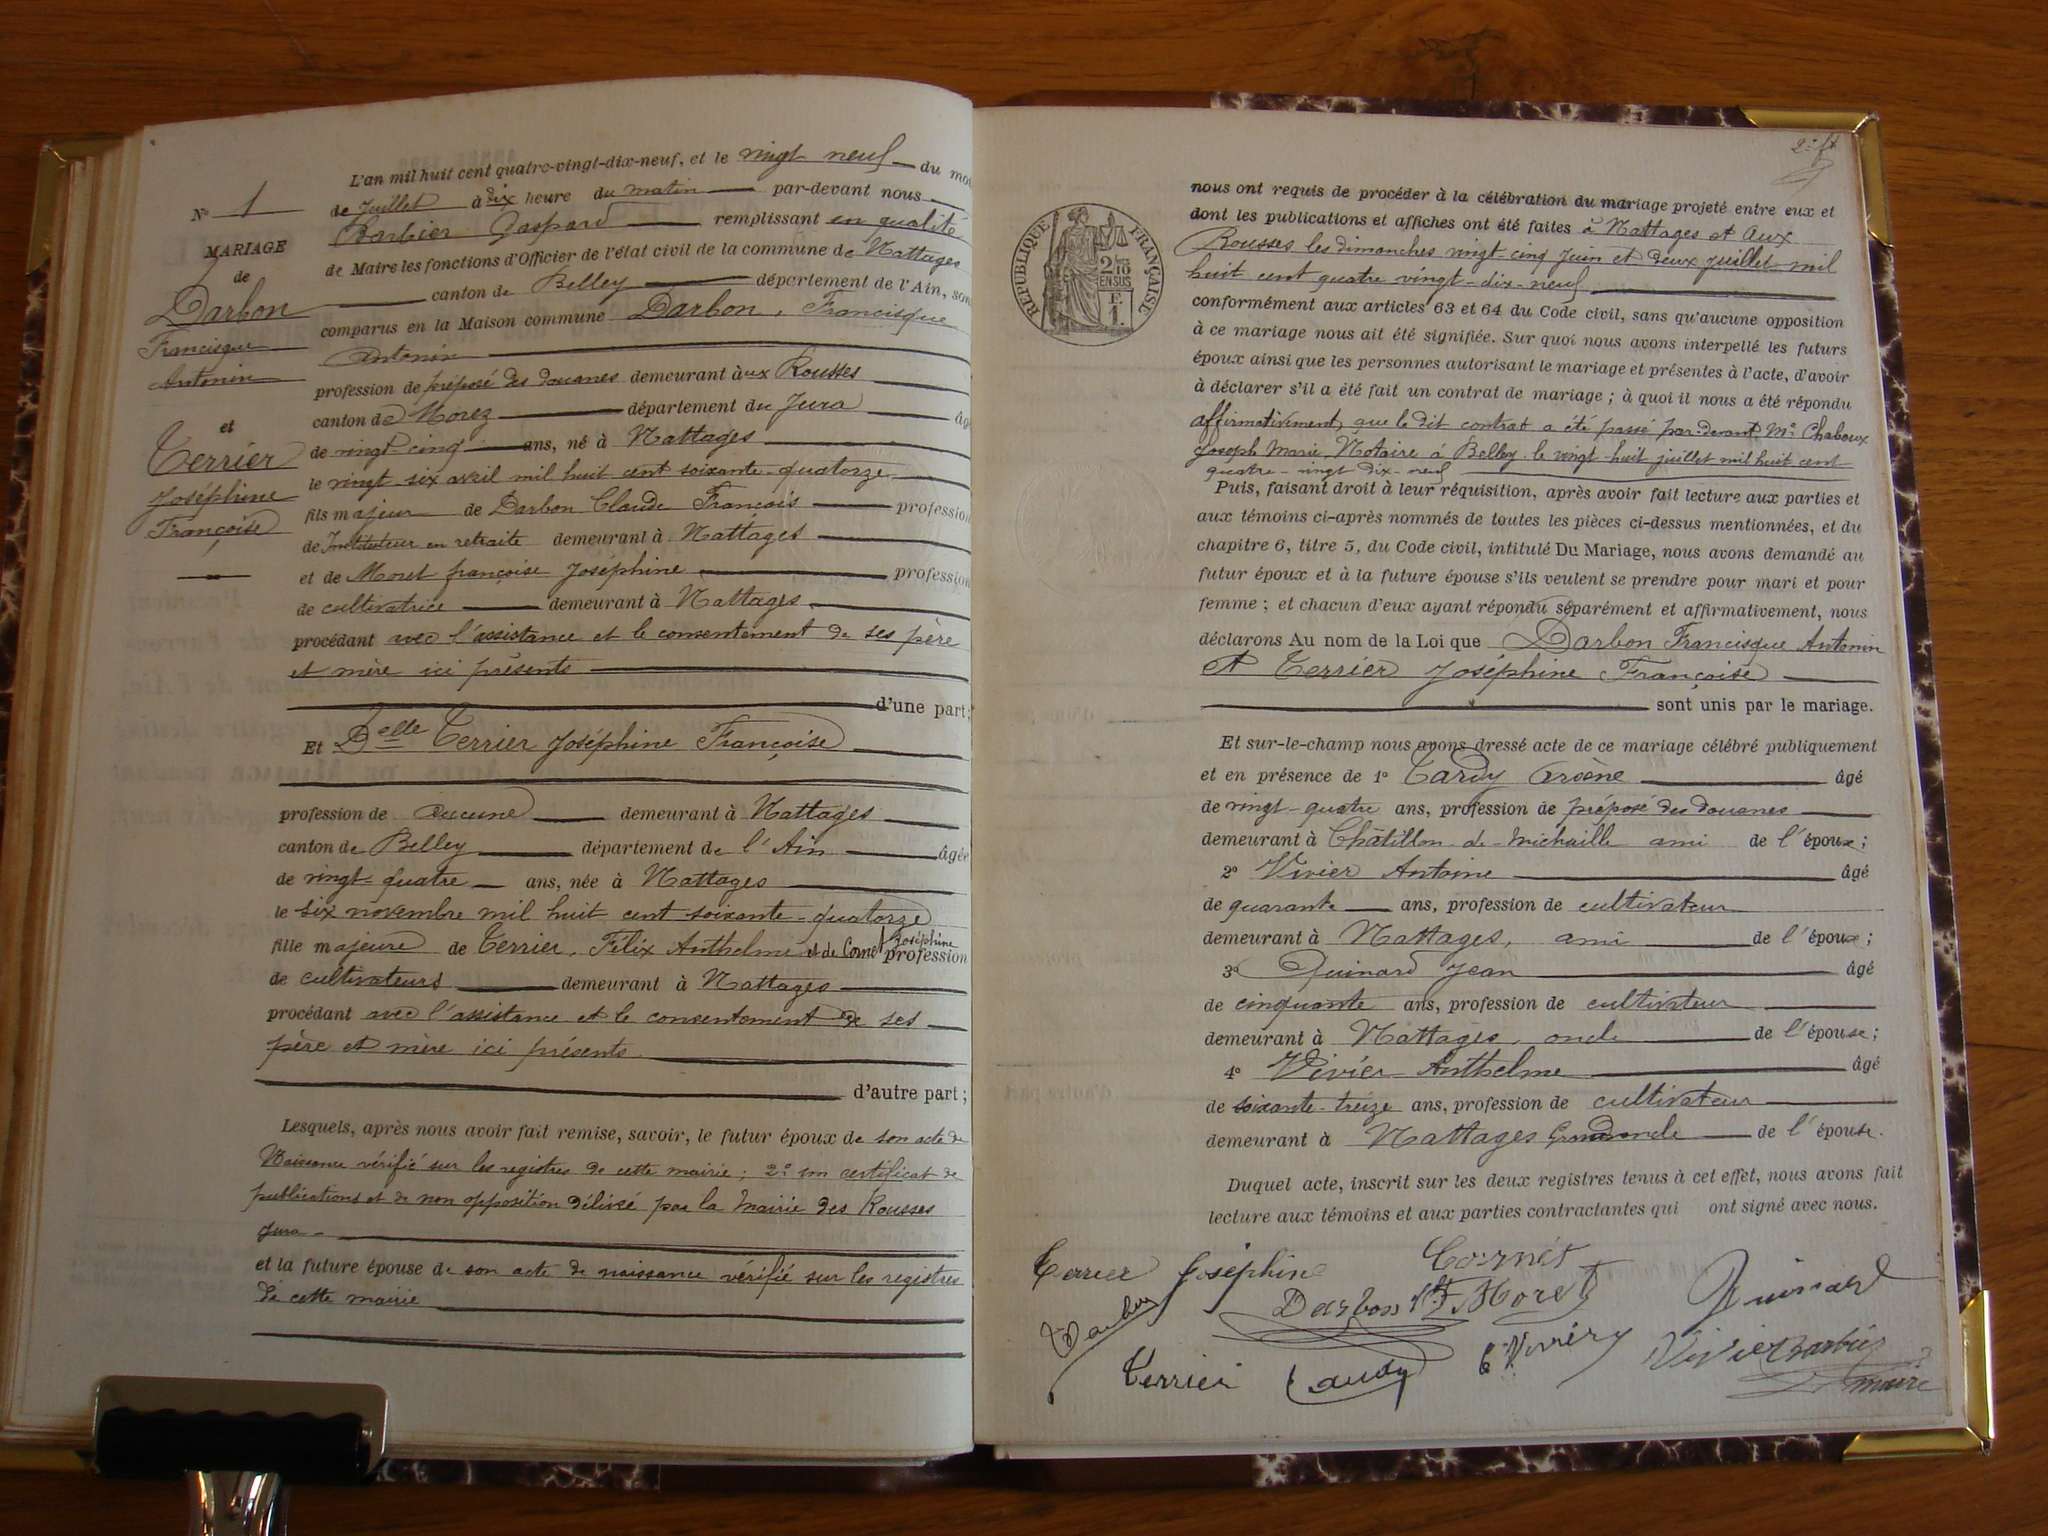 N° 1
MARIAGE
de
Darbon
Francisque
Antonin
et
Terrier
Joséphine
Françoise
L'an mil huit cent quatre-vingt-dix-neuf, et le vingt neuf du moi
de Juillet à dix heure du matin par-devant nous
Barbier Gaspard remplissant en qualité
de Maire les fonctions d'Officier de l'état civil de la commune de Nattages
canton de Belley département de l'Ain, son
comparus en la Maison commune Darbon, Francisque
Antonin
profession de préposé des douanes demeurant aux Rousses
canton de Morez département du Jura âg
de vingt-cinq ans, né à Nattages
le vingt-six avril mil huit cent soixante-quatorze
fils majeur de Darbon Claude François profession
de Instituteur en retraite demeurant à Nattages
et de Moret françoise Joséphine profession
de cultivatrice demeurant à Nattages
procédant avec l'assistance et le consentement de ses père
et mère ici présents
d'une part;
Et Delle Terrier Joséphine Françoise
profession de aucune demeurant à Nattages
canton de Belley département de l'Ain âgée
de vingt-quatre ans, née à Nattages
le six novembre mil huit cent soixante-quatorze
fille majeure de Terrier, Félix Anthelme et de Cornet Joséphine profession
de cultivateurs demeurant à Nattages
procédant avec l'assistance et le consentement de ses
père et mère ici présents
d'autre part;
Lesquels, après nous avoir fait remise, savoir, le futur époux de son acte de
Naissance vérifié sur les registres de cette mairie; 2° un certificat de
publications et de non opposition délivré par la Mairie des Rousses
Jura
et la future épouse de son acte de naissance vérifié sur les registres
de cette mairie
2e ft
RÉPUBLIQUE FRANÇAISE
2/10
EN SUS
F.
1.
nous ont requis de procéder à la célébration du mariage projeté entre eux et
dont les publications et affiches ont été faites à Nattages et aux
Rousses les dimanches vingt-cinq Juin et deux Juillet mil
huit cent quatre vingt-dix-neuf
conformément aux articles 63 et 64 du Code civil, sans qu'aucune opposition
à ce mariage nous ait été signifiée. Sur quoi nous avons interpellé les futurs
époux ainsi que les personnes autorisant le mariage et présentes à l'acte, d'avoir
à déclarer s'il a été fait un contrat de mariage; à quoi il nous a été répondu
affirmativement, que le dit contrat a été passé par-devant Me Chaboux
Joseph Marie Notaire à Belley le vingt-huit juillet mil huit cent
quatre-vingt dix-neuf
Puis, faisant droit à leur réquisition, après avoir fait lecture aux parties et
aux témoins ci-après nommés de toutes les pièces ci-dessus mentionnées, et du
chapitre 6, titre 5, du Code civil, intitulé Du Mariage, nous avons demandé au
futur époux et à la future épouse s'ils veulent se prendre pour mari et pour
femme; et chacun d'eux ayant répondu séparément et affirmativement, nous
déclarons Au nom de la Loi que Darbon Francisque Antonin
et Terrier Joséphine Françoise
sont unis par le mariage.
Et sur-le-champ nous avons dressé acte de ce mariage célébré publiquement
et en présence de 1° Tardy Arsène âgé
de vingt-quatre ans, profession de préposé des douanes
demeurant à Châtillon-de-Michaille ami de l'époux;
2° Vivier Antoine âgé
de quarante ans, profession de cultivateur
demeurant à Nattages, ami de l'époux;
3° Guinard Jean âgé
de cinquante ans, profession de cultivateur
demeurant à Nattages, oncle de l'épouse;
4° Vivier Anthelme âgé
de soixante-treize ans, profession de cultivateur
demeurant à Nattages Grand oncle de l'épouse.
Duquel acte, inscrit sur les deux registres tenus à cet effet, nous avons fait
lecture aux témoins et aux parties contractantes qui ont signé avec nous.
Terrier Joséphine Cornet
Darbon Moret Guinard
Terrier Tardy Vivier Barbier
maire